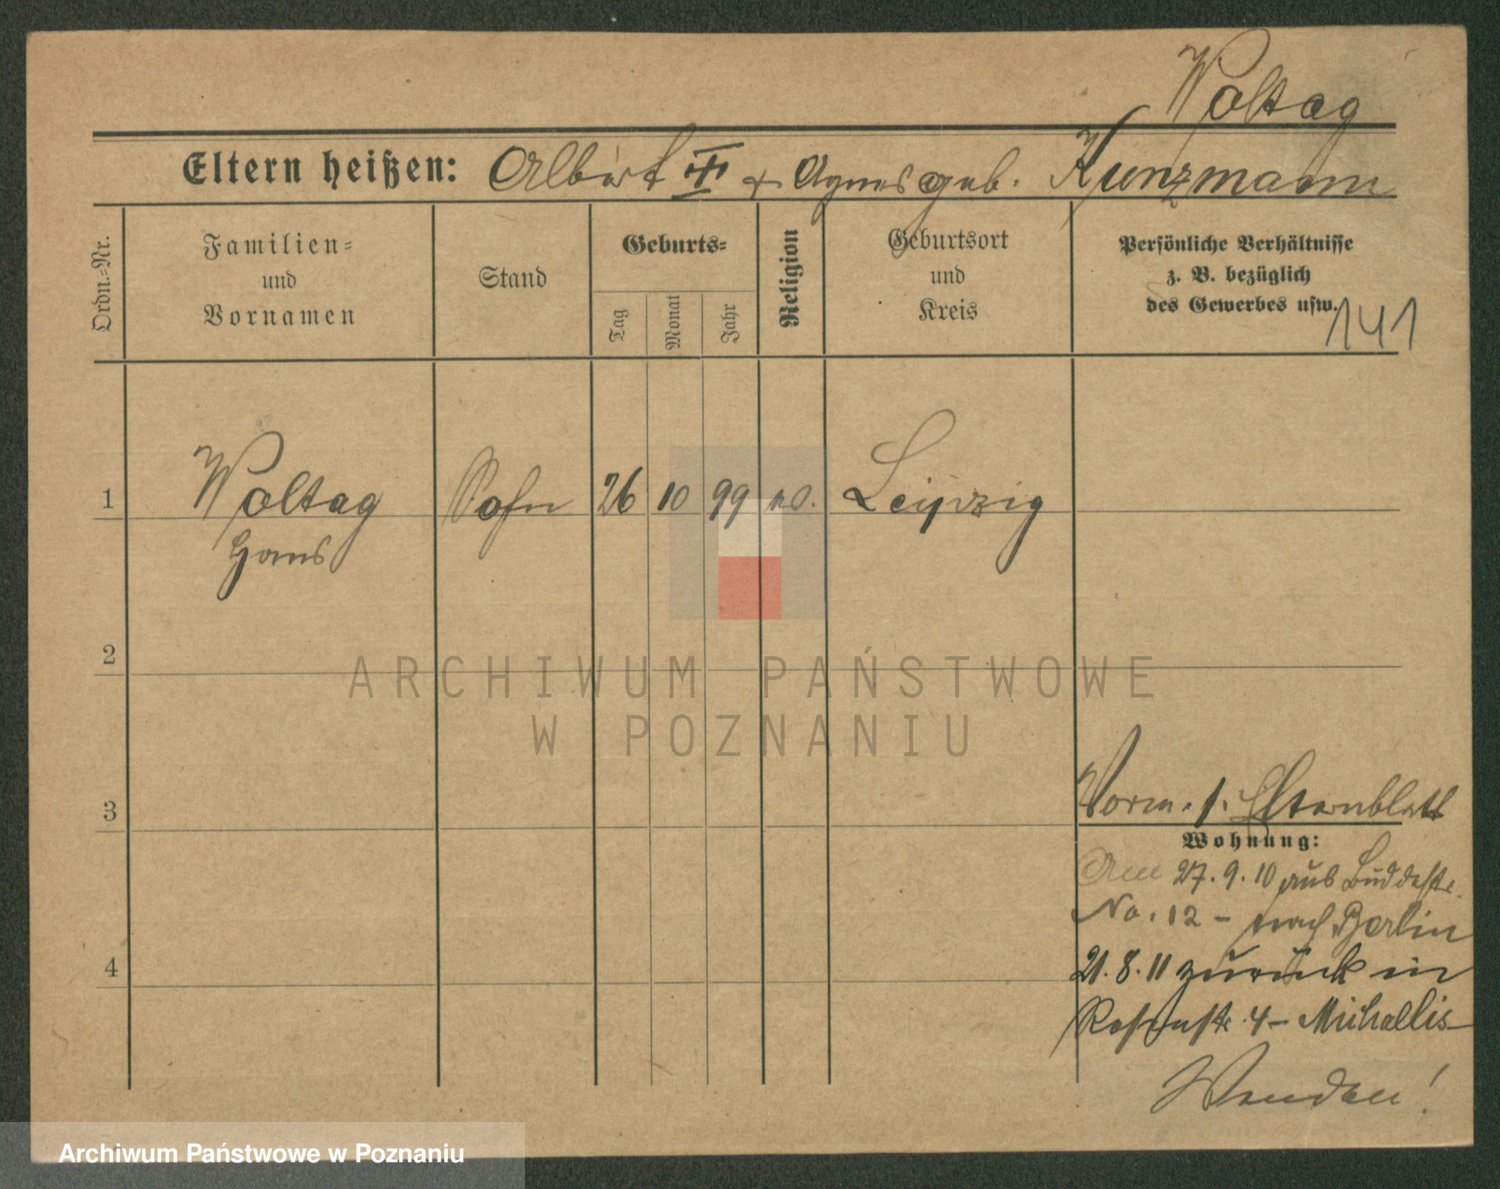 Woltag
Eltern heißen: Albert III + Agnes geb. Kunzmann
Ordn.-Nr.
Familien-
und
Vornamen
Stand
Geburts-
Tag
Monat
Jahr
Religion
Geburtsort
und
Kreis
Persönliche Verhältnisse
z. B. bezüglich
des Gewerbes usw.
141
1 Woltag Sohn 26 10 99 Leipzig
Hans
2
ARCHIWUM PAŃSTWOWE
W POZNANIU
3
Vorm. s. Elternblatt
Wohnung:
Am 27.9.10 aus Buddestr.
No. 12 - nach Berlin
4
21.8.11 zurück in
Rosenstr. 4 - Michallis
Wenden!
Archiwum Państwowe w Poznaniu